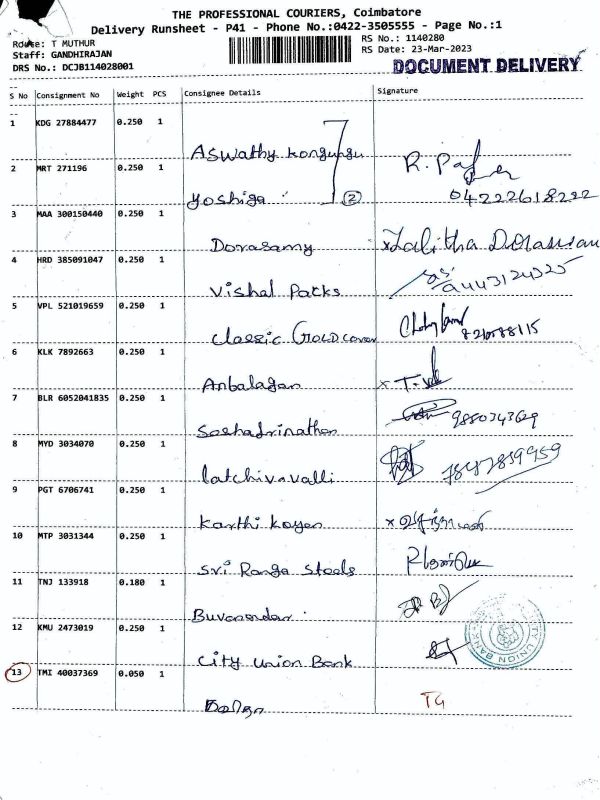 THE PROFESSIONAL COURIERS, Coimbatore
Delivery Runsheet - P41 - Phone No.:0422-3505555 - Page No.:1
Route: T MUTHUR
RS No.: 1140280
Staff: GANDHIRAJAN
RS Date: 23-Mar-2023
DRS No.: DCJB114028001
DOCUMENT DELIVERY
S No Consignment No Weight PCS Consignee Details Signature
1 KDG 27884477 0.250 1
Aswathy Kongungu
2 MRT 271196 0.250 1 R.
Yoshiga 2 04222618222
3 MAA 300150440 0.250 1
Dorasamy Lalitha Dorassian
4 HRD 385091047 0.250 1
Vishal Packs 9443124325
5 VPL 521019659 0.250 1
Classic GOLD cover
6 KLK 7892663 0.250 1
Anbalagan
7 BLR 6052041835 0.250 1
Seshadrinathan 9880343629
8 MYD 3034070 0.250 1
Latchivavalli
9 PGT 6706741 0.250 1
Karthi Kayen
10 MTP 3031344 0.250 1
Sri Ranga Steels
11 TNJ 133918 0.180 1
Buvanendar
12 KMU 2473019 0.250 1
City Union Bank
CITY UNION BANK
13 TMI 40037369 0.050 1
TG